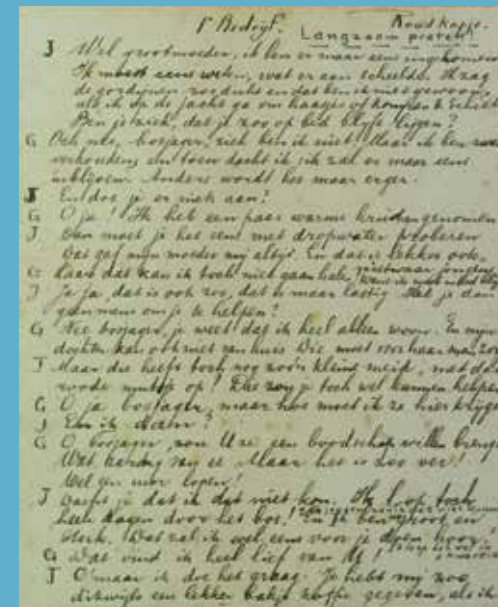 1e Bedrijf. Roodkapje.
Langzaam praten!
J Wel grootmoeder, ik ben er maar eens ingekomen
Ik moest eens weten, wat er aan scheelde. Ik zag
de gordijnen nog dicht en dat ben ik niet gewoon,
als ik op de jacht ga om haasjes of konijnen te schiet
Ben je ziek, dat je zoo op bed blijft liggen?
G Och nee, bosjager, ziek ben ik niet. Maar ik ben zwaar
verkouden en toen dacht ik, ik zal er maar eens
inblijven. Anders wordt het maar erger.
J En doe je er niets aan?
G O ja! Ik heb een paar warme kruiken genomen
J Dan moet je het eens met dropwater probeeren
Dat gaf mijn moeder mij altijd. En dat is lekker ook.
G Maar dat kan ik toch niet gaan halen,
J Ja ja, dat is ook zoo, dat is maar lastig. Heb je dan
geen mens om je te helpen?
G Nee bosjager, je weet dat ik heel alleen woon. En mijn
dochter kan ook niet van huis. Die moet voor haar man zor
J Maar die heeft toch nog zoo'n kleine meid, met dat
roode mutsje op! Die zou je toch wel kunnen helpen
G O ja bosjager, maar hoe moet ik ze hier krijgen
J En ik dan?
G O bosjager, zou U ze een boodschap willen brengen
Wat aardig van U. Maar het is zoo ver!
Wel een uur lopen!
J Dacht je dat ik dat niet kon. Ik loop toch
heele dagen door het bos! En ik ben groot en
sterk. Dat zal ik wel eens voor je doen hoor!
G Dat vind ik heel lief van U!
J O maar ik doe het graag. Je hebt mij zoo
dikwijls een lekker bakje koffie gegeven, als ik